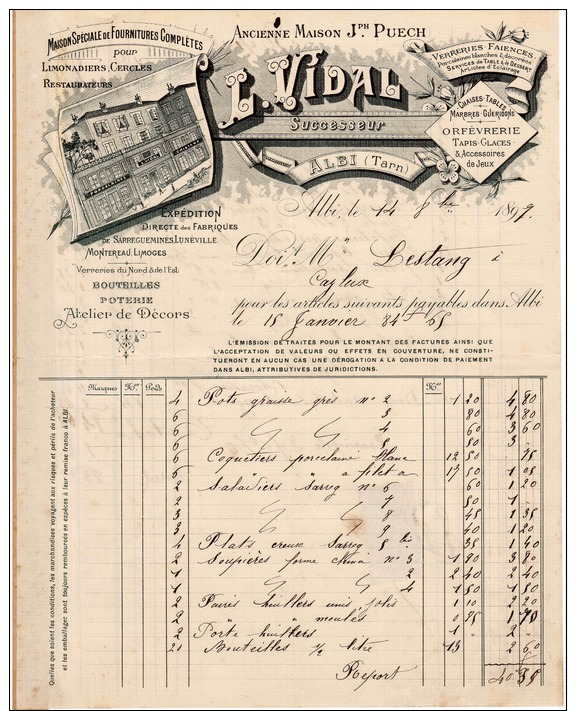 Maison Spéciale de Fournitures Complètes
pour
Limonadiers, Cercles
Restaurateurs
Ancienne Maison Jph Puech
L. Vidal
Successeur
Albi (Tarn)
Verreries-Faïences
Porcelaines blanches & décorées
Services de Table & de Dessert
Articles d'Eclairage
Chaises-Tables
Marbres-Guéridons
Orfèvrerie
Tapis-Glaces
& Accessoires
de Jeux
Expédition
Directe des Fabriques
de Sarreguemines, Lunéville
Montereau, Limoges
Verreries du Nord & de l'Est
Bouteilles
Poterie
Atelier de Décors
Albi, le 14 8bre 1897.
Doit Mr Lestang à
Caylux
pour les articles suivants payables dans Albi
le 15 Janvier
L'ÉMISSION DE TRAITES POUR LE MONTANT DES FACTURES AINSI QUE
L'ACCEPTATION DE VALEURS OU EFFETS EN COUVERTURE, NE CONSTI-
TUERONT EN AUCUN CAS UNE DÉROGATION A LA CONDITION DE PAIEMENT
DANS ALBI, ATTRIBUTIVES DE JURIDICTIONS.
Marques Nos Pds Nos
4 Pots graisse grès no 2 1 20 4 80
6 3 80 4 80
6 4 60 3 60
6 5 50 3 -
6 Coquetiers porcelaine blanc 12 50 75
6 " " à filet 17 50 1 05
2 Saladiers Sarreg no 6 60 1 20
2 7 50 1 -
3 8 45 1 35
3 9 40 1 20
4 Plats creux Sarreg 35 1 40
2 Soupières forme no 3 1 90 3 80
1 2 2 40 2 40
1 4 1 50 1 50
2 Paires huiliers unis, jolis 1 10 2 20
2 " " moulés 0 85 1 70
2 Porte huiliers 1 - 2 -
20 Bouteilles 1/2 litre 13 2 60
Report
Quelles que soient les conditions, les marchandises voyagent aux risques et périls de l'acheteur
et les emballages sont toujours remboursés en espèces à leur remise franco à ALBI.